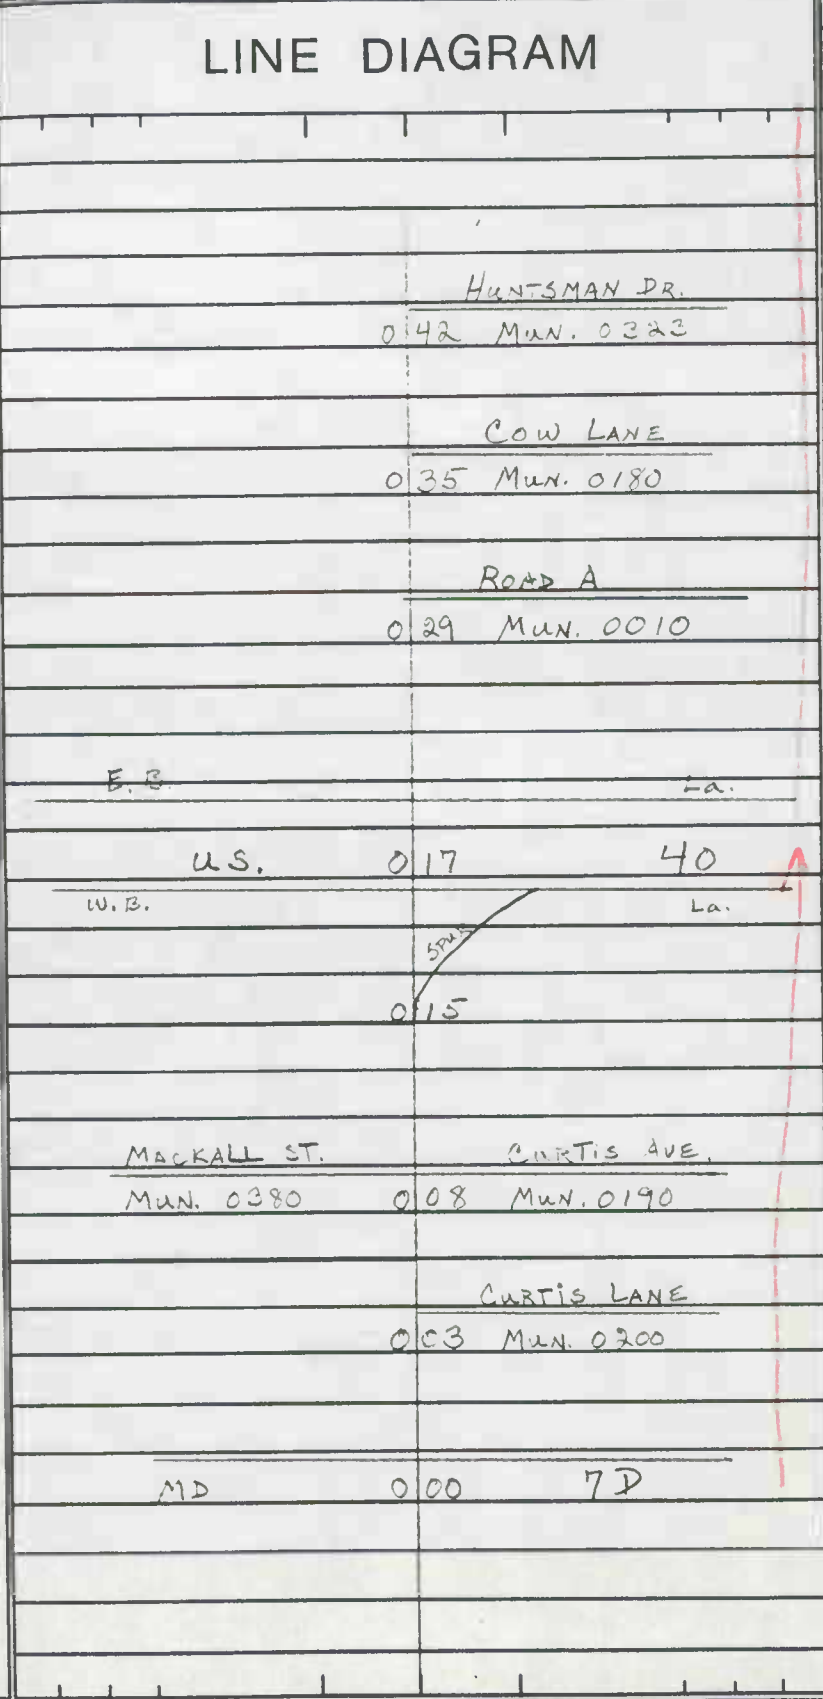 LINE DIAGRAM
HUNTSMAN DR.
0 42 MUN. 0323
COW LANE
0 35 MUN. 0180
ROAD A
0 29 MUN. 0010
E. B. La.
U.S. 0 17 40
W. B. La.
SPUR
0 15
MACKALL ST. CURTIS AVE.
MUN. 0380 0 08 MUN. 0190
CURTIS LANE
0 03 MUN. 0200
MD 0 00 7D